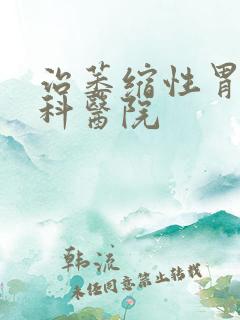 治萎缩性胃
科醫院
韩流
未经同意禁止转载